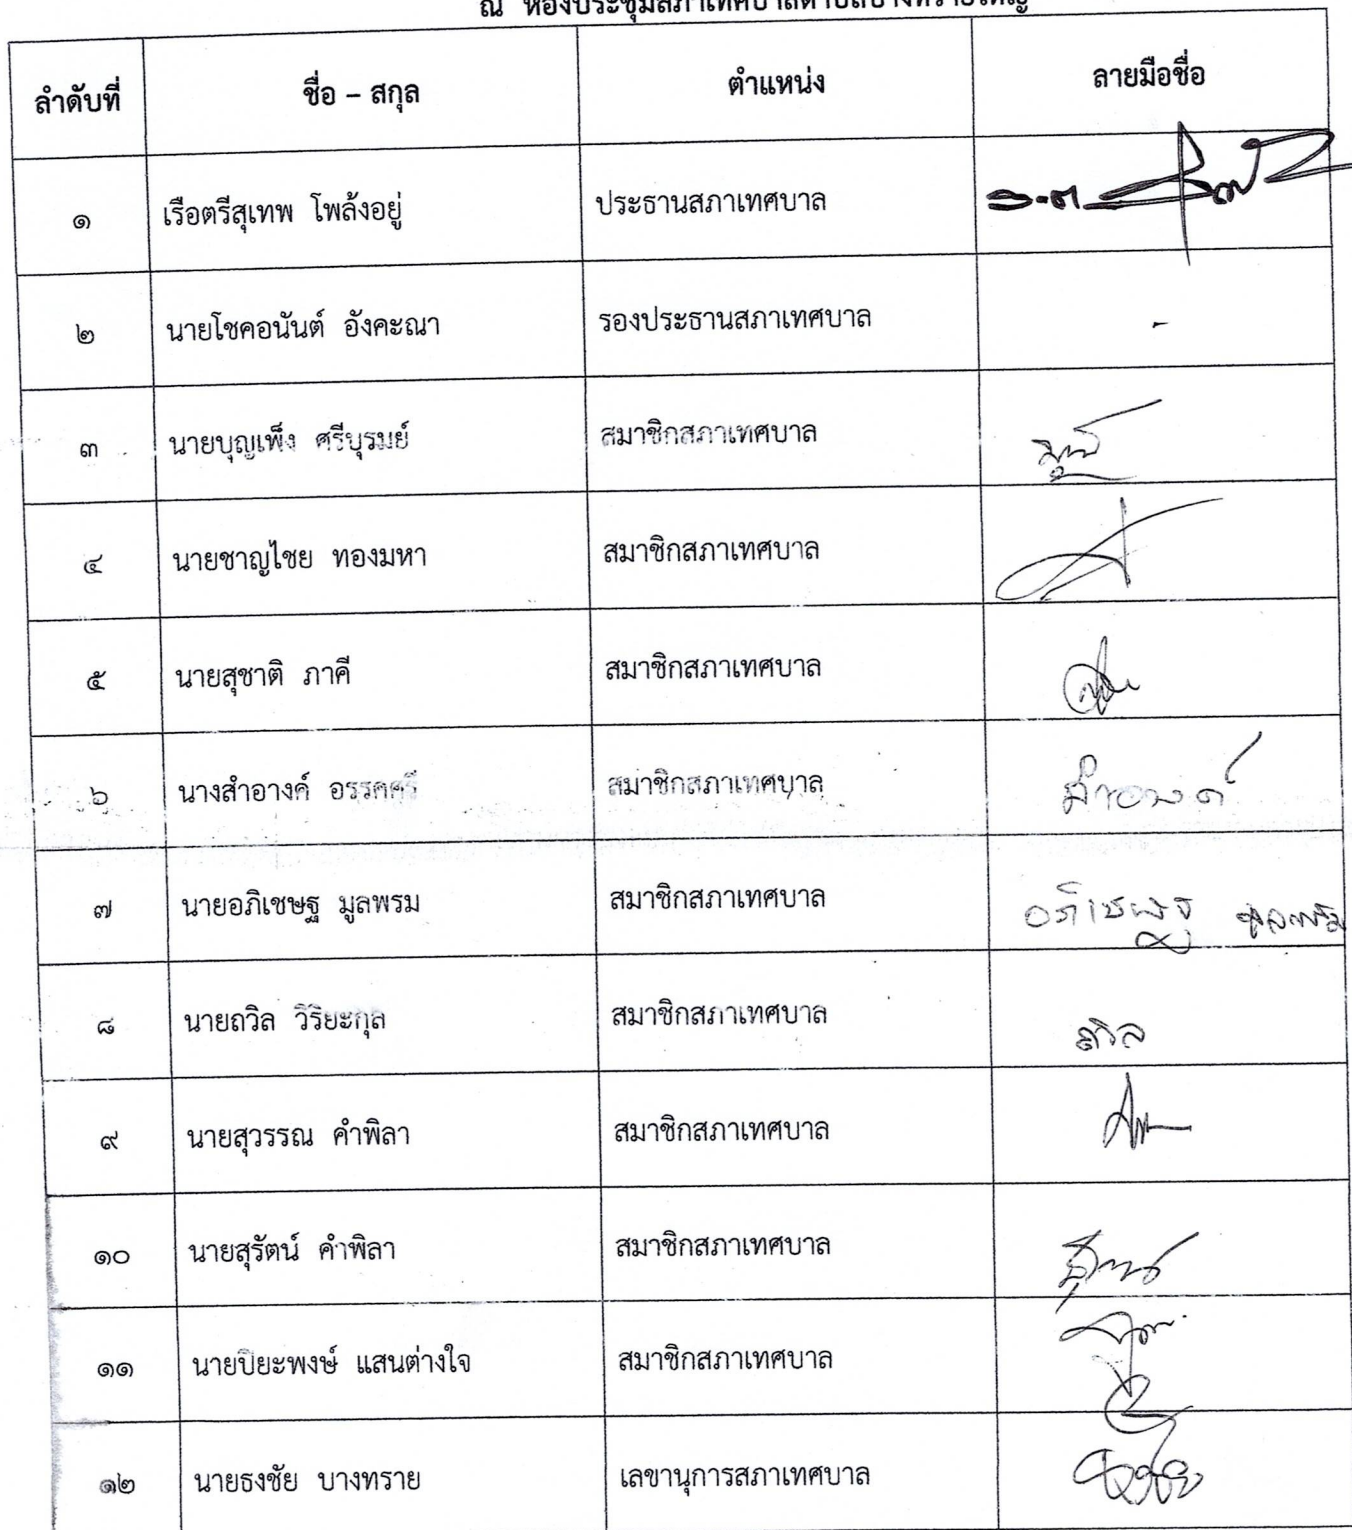 ณ ห้องประชุมสภาเทศบาลตำบลบางทรายใหญ่
ลำดับที่ ชื่อ – สกุล ตำแหน่ง ลายมือชื่อ
๑ เรือตรีสุเทพ โพล้งอยู่ ประธานสภาเทศบาล ร.ต.
๒ นายโชคอนันต์ อังคะณา รองประธานสภาเทศบาล -
๓ นายบุญเพ็ง ศรีบุรมย์ สมาชิกสภาเทศบาล
๔ นายชาญไชย ทองมหา สมาชิกสภาเทศบาล
๕ นายสุชาติ ภาคี สมาชิกสภาเทศบาล
๖ นางสำอางค์ อรรคศรี สมาชิกสภาเทศบาล สำอางค์
๗ นายอภิเชษฐ มูลพรม สมาชิกสภาเทศบาล อภิเชษฐ มูลพรม
๘ นายถวิล วิริยะกุล สมาชิกสภาเทศบาล ถวิล
๙ นายสุวรรณ คำพิลา สมาชิกสภาเทศบาล
๑๐ นายสุรัตน์ คำพิลา สมาชิกสภาเทศบาล
๑๑ นายปิยะพงษ์ แสนต่างใจ สมาชิกสภาเทศบาล
๑๒ นายธงชัย บางทราย เลขานุการสภาเทศบาล